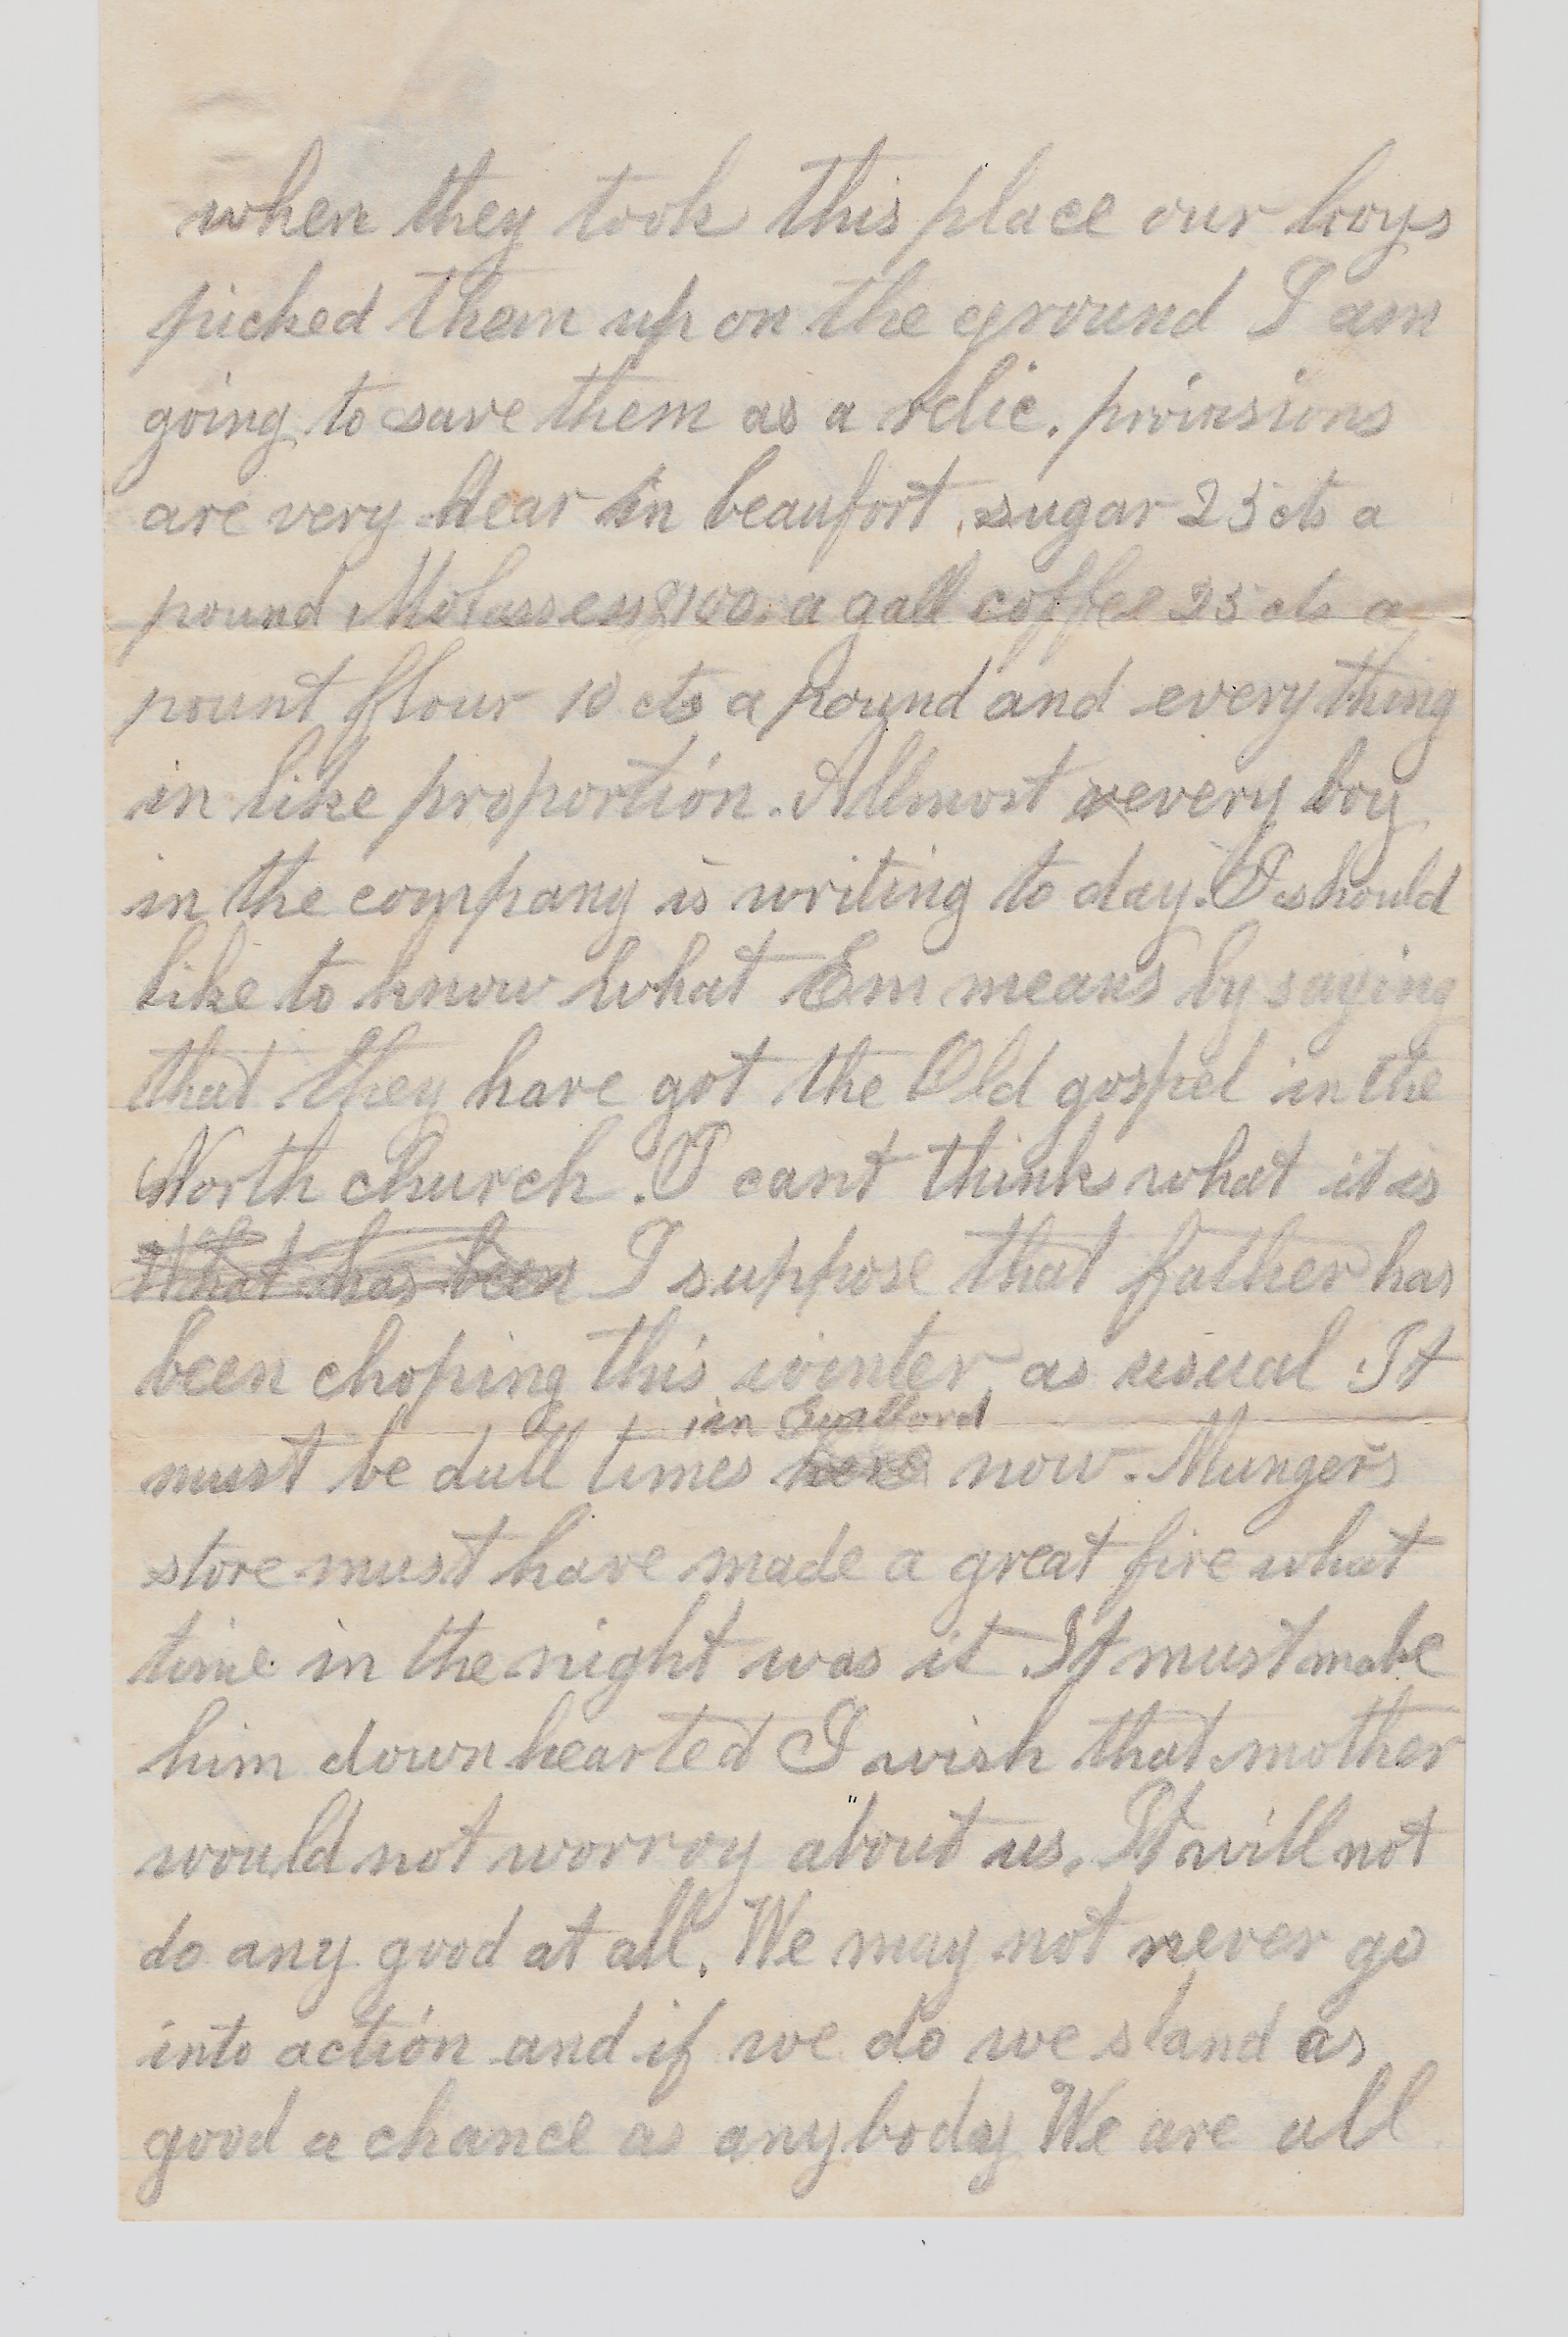 when they took this place our boys
picked them up on the ground I am
going to save them as a relic. provisions
are very dear in beaufort, sugar 25 cts a
pound Molasses $100. a gall coffee 25 cts a
pount flour 10 cts a pound and everything
in like proportion. Allmost every boy
in the company is writing to day. I should
like to know what Em means by saying
that they have got the Old gospel in the
North church. I cant think what it is
What has been I suppose that father has
been choping this winter as usual It
in Guilford
must be dull times here now. Mungers
store must have made a great fire what
time in the night was it It must make
him down hearted I wish that mother
would not worroy about us. It will not
do any good at all. We may not never go
into action and if we do we stand as
good a chance as anybody We are all